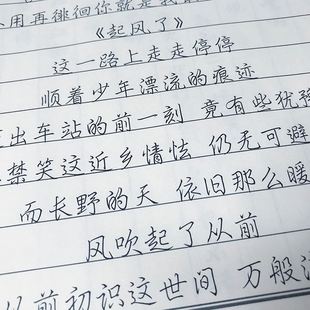 用再徘徊你就是我
《起风了》
这一路上走走停停
顺着少年漂流的痕迹
出车站的前一刻 竟有些犹豫
禁笑这近乡情怯 仍无可避
而长野的天 依旧那么暖
风吹起了从前
从前初识这世间 万般